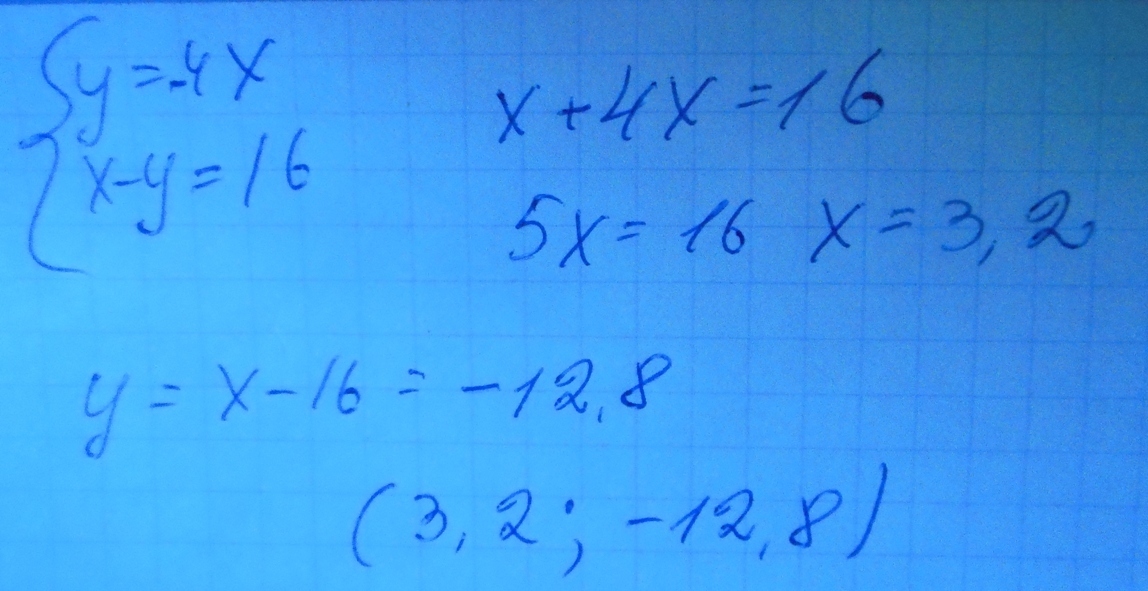 y=-4x
x-y=16
x+4x=16
5x=16 x=3,2
y=x-16=-12,8
(3,2; -12,8)